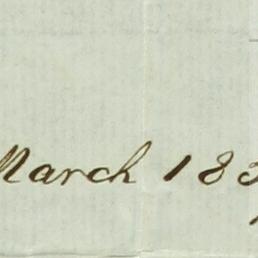 March 183